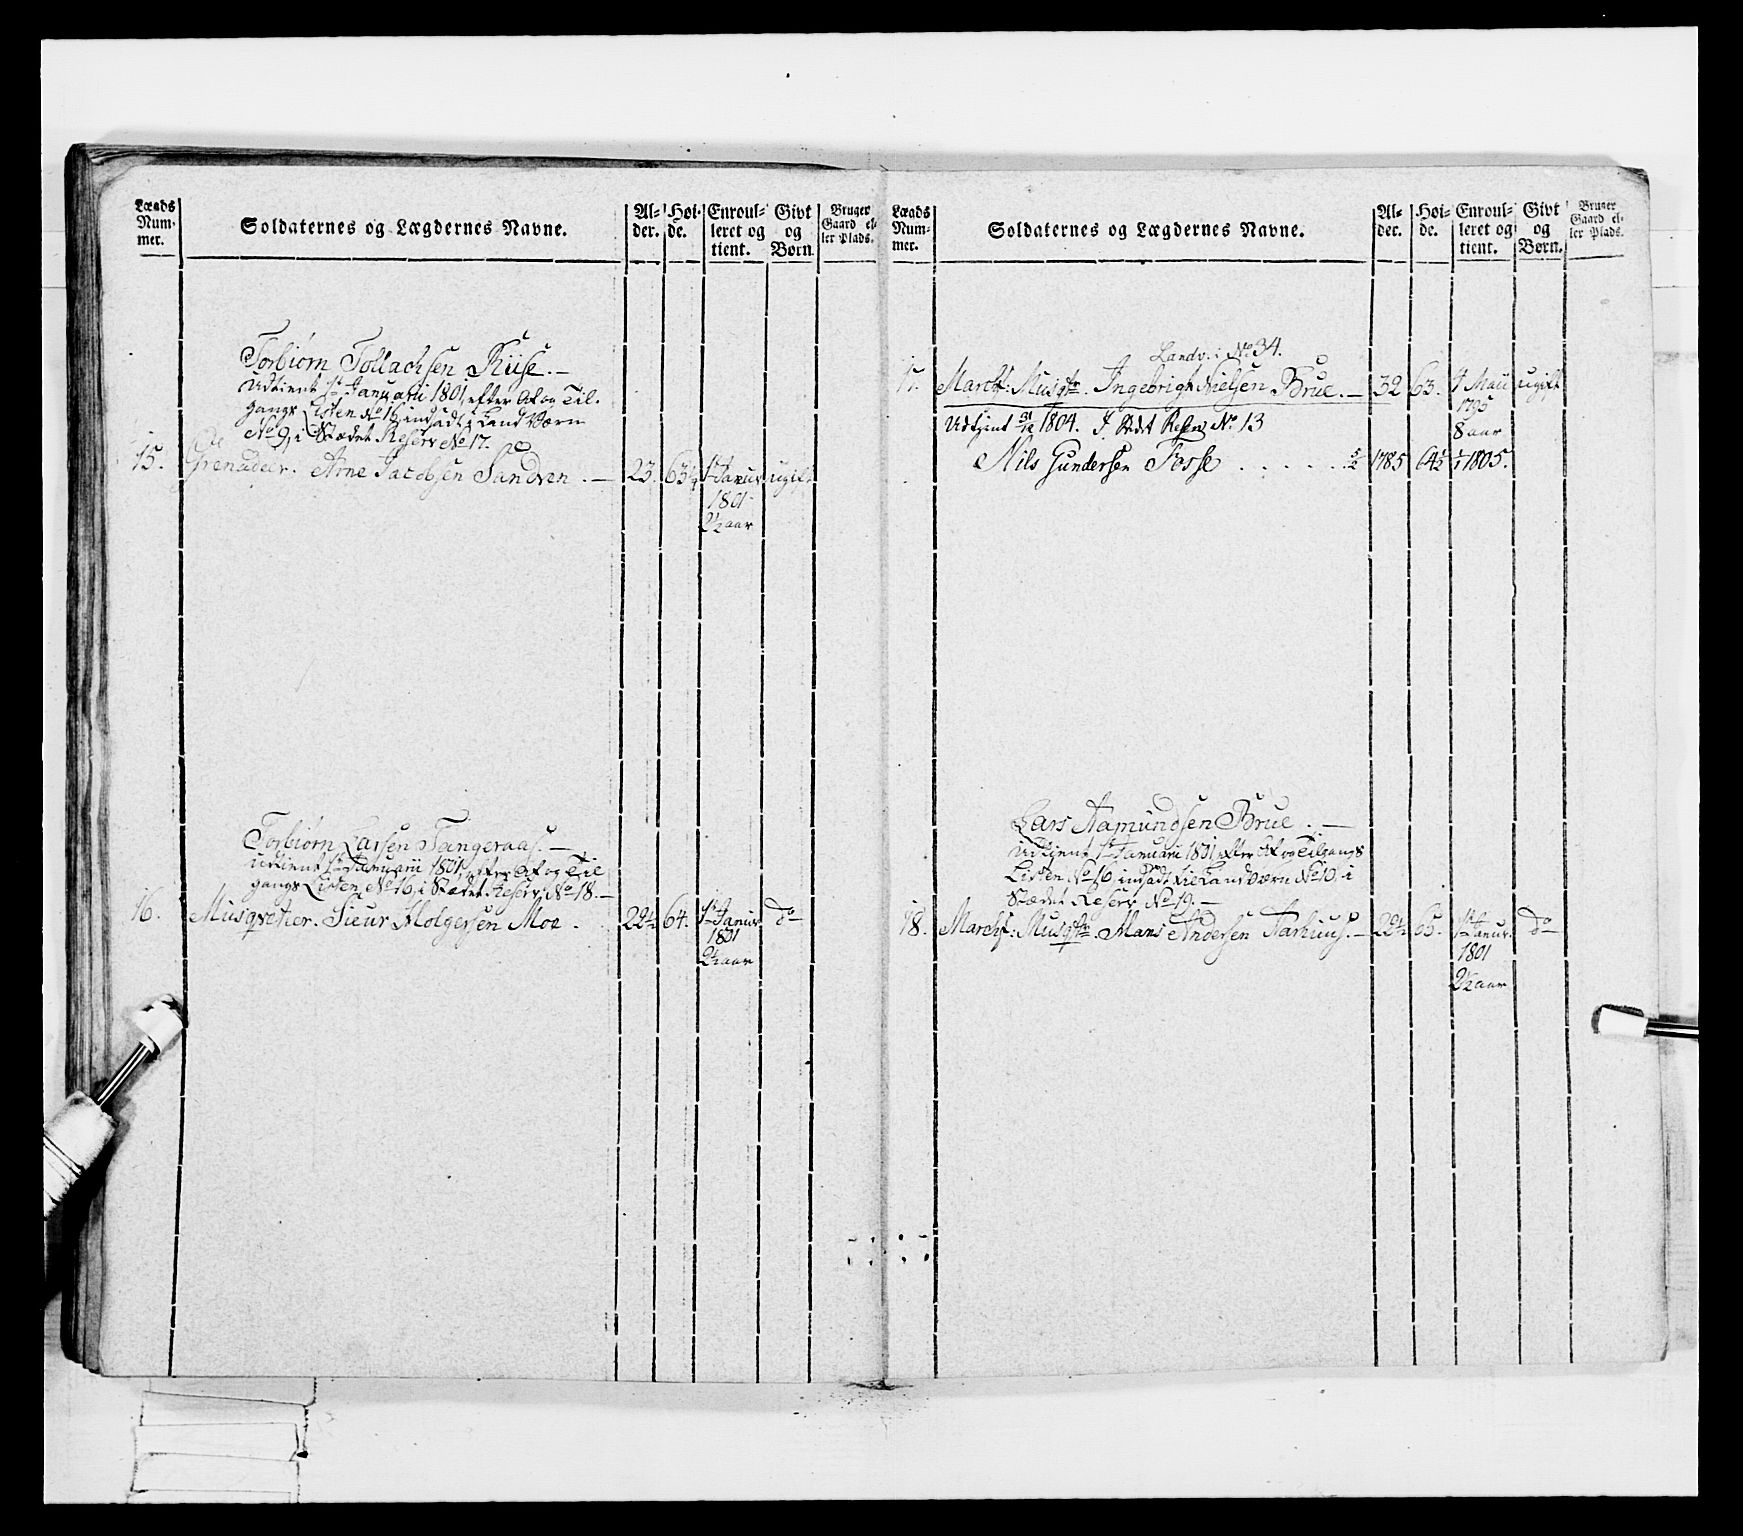 Lægds Num-mer. Soldaternes og Lægdernes Navne. Al-der. Høi-de. Enroul-leret og tient. Givt og Børn Bruger Gaard el-ler Plads.
Torbiørn Tollachsen Riise. —
udtient 1ste Januarii 1801, efter Af og Til-
gangs Listen No 16, indsadt i Land Wærn
No 9, i Stædet Reserv No 17.
15. Grenadeer. Arne Jacobsen Sandven . — 23. 63 1/2 1ste Januar ugift
1801
2 1/2 aar
Torbiørn Larsen Tangeraas. —
udtient 1ste Januarii 1801, efter Af og Til
gangs Listen No 16, i Stædet Reserv No 18. —
16. Musqvetier. Sieur Holgersen Moe . 22 1/2 64. 1ste Januar do
1801
2 1/2 aar
Lægds Num-mer. Soldaternes og Lægdernes Navne. Al-der. Høi-de. Enroul-leret og tient. Givt og Børn. Bruger Gaard el-ler Plads.
Landv. i No 34.
17. March: Musqtr. Ingebrigt Nielsen Brue. — 32 63. Maii ugift
1795
8 aar
Udtjent 31/12 1804. I Stedt Reserv No 13
Nils Gundersen Fosse . . . . . . 1785 64 1/2 1/1 1805.
Lars Aamundsen Brue . —
udtient 1ste Januarii 1801, efter Af og Tilgangs
Listen No 16, indsadt til Land Wærn No 10, i
Stædet Reserv No 19. —
18. March: Musqtr. Mans Andersen Aarhuus. — 22 1/2 65. 1ste Januar. do
1801
2 1/2 aar